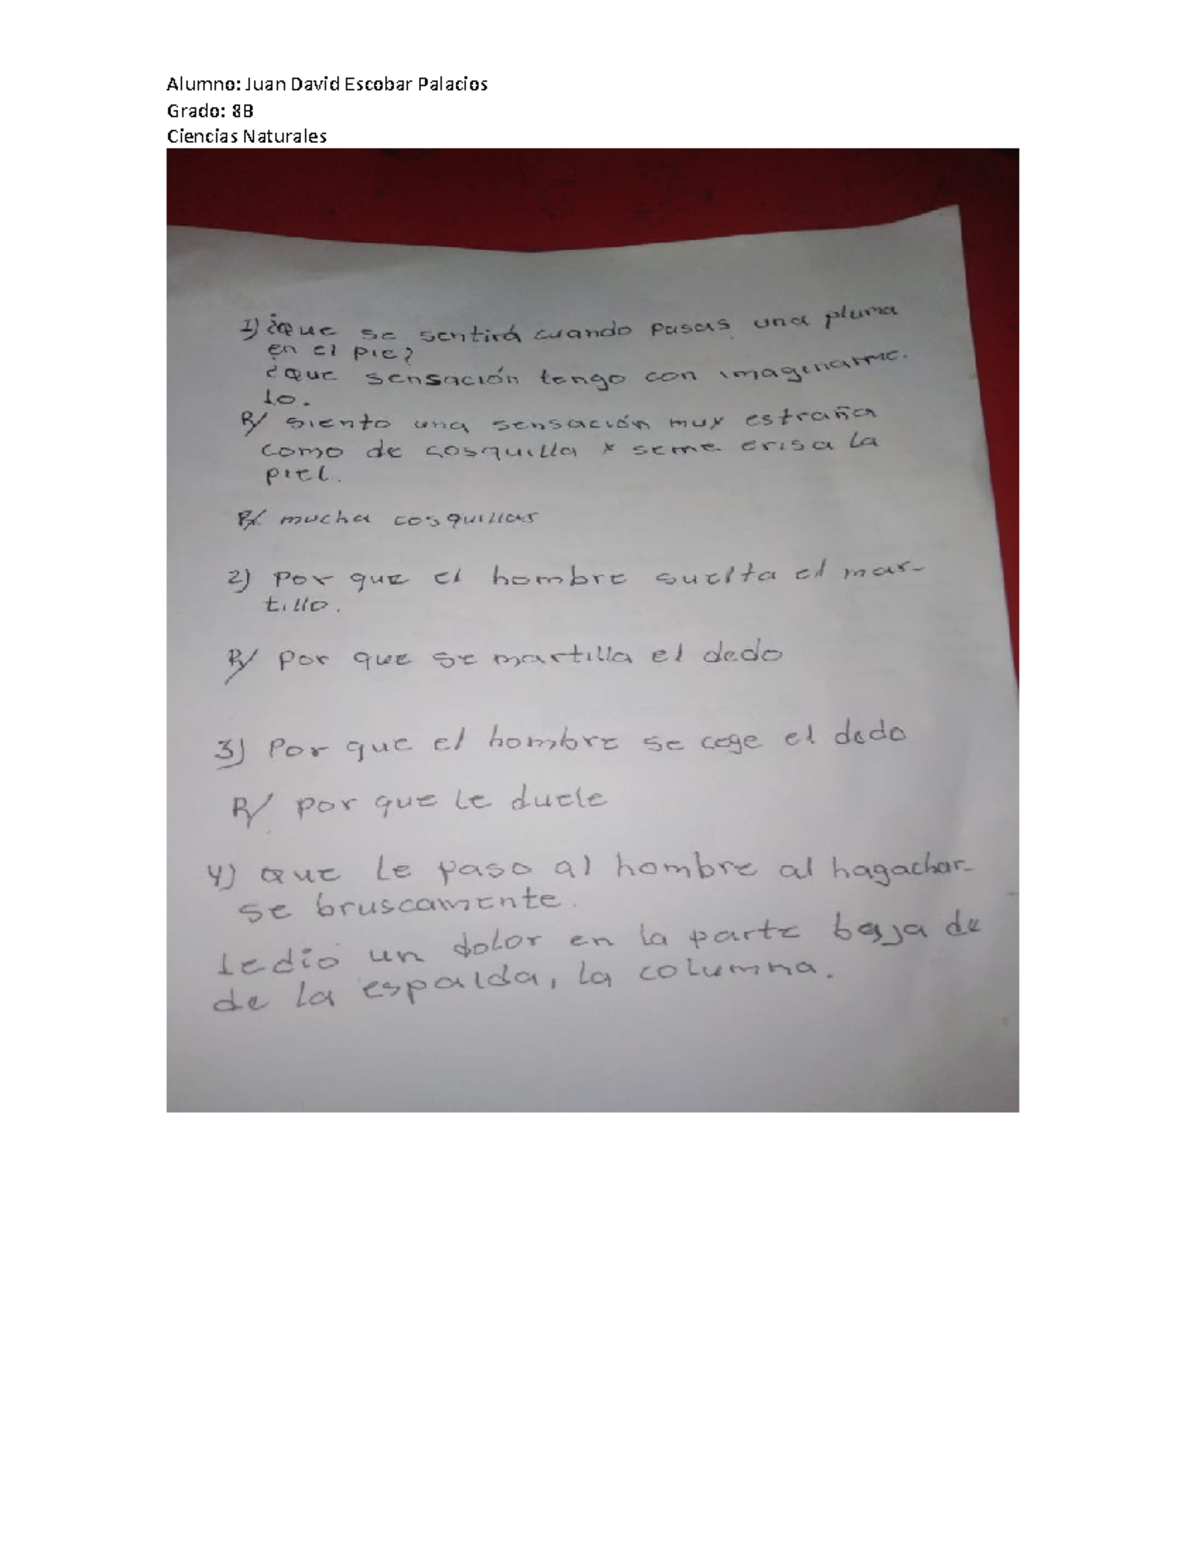 Alumno: Juan David Escobar Palacios
Grado: 8B
Ciencias Naturales
1) ¿Que se sentirá cuando pasas una pluma
en el pie?
¿que sensación tengo con imaginarme-
lo.
R/ siento una sensación muy estraña
como de cosquilla y seme erisa la
piel.
R/ mucha cosquillas
2) Por que el hombre suelta el mar-
tillo.
R/ por que se martilla el dedo
3) Por que el hombre se coge el dedo
R/ por que le duele
4) que le paso al hombre al hagachar-
se bruscamente.
ledio un dolor en la parte baja de
de la espalda, la columna.